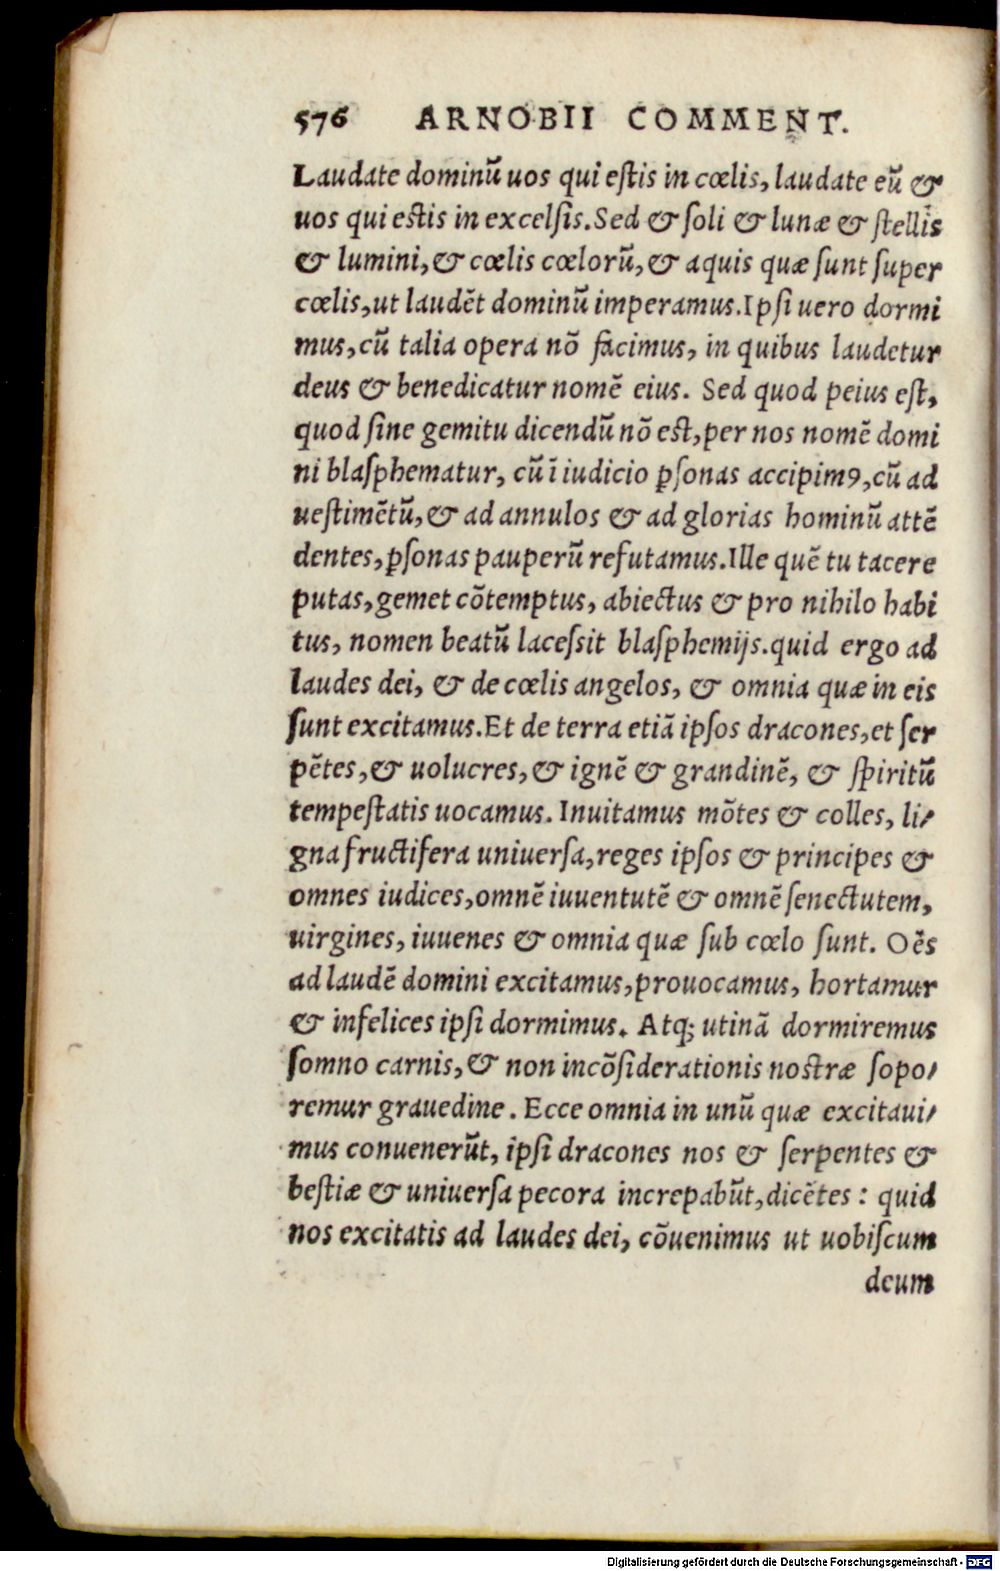 576 ARNOBII COMMENT.
Laudate dominū uos qui estis in cœlis, laudate eū &
uos qui estis in excelsis. Sed & soli & lunæ & stellis
& lumini, & cœlis cœlorū, & aquis quæ sunt super
cœlis, ut laudēt dominū imperamus. Ipsi uero dormi
mus, cū talia opera nō facimus, in quibus laudetur
deus & benedicatur nomē eius. Sed quod peius est,
quod sine gemitu dicendū nō est, per nos nomē domi
ni blasphematur, cū ī iudicio ꝑsonas accipimꝰ, cū ad
uestimētū, & ad annulos & ad glorias hominū attē
dentes, ꝑsonas pauperū refutamus. Ille quē tu tacere
putas, gemet cōtemptus, abiectus & pro nihilo habi
tus, nomen beatū lacessit blasphemijs. quid ergo ad
laudes dei, & de cœlis angelos, & omnia quæ in eis
sunt excitamus. Et de terra etiā ipsos dracones, et ser
pētes, & uolucres, & ignē & grandinē, & spiritū
tempestatis uocamus. Inuitamus mōtes & colles, li-
gna fructifera uniuersa, reges ipsos & principes &
omnes iudices, omnē iuuentutē & omnē senectutem,
uirgines, iuuenes & omnia quæ sub cœlo sunt. Oēs
ad laudē domini excitamus, prouocamus, hortamur
& infelices ipsi dormimus. Atq; utinā dormiremus
somno carnis, & non incōsiderationis nostræ sopo-
remur grauedine. Ecce omnia in unū quæ excitaui-
mus conuenerūt, ipsi dracones nos & serpentes &
bestiæ & uniuersa pecora increpabūt, dicētes: quid
nos excitatis ad laudes dei, cōuenimus ut uobiscum
deum
Digitalisierung gefördert durch die Deutsche Forschungsgemeinschaft - DFG